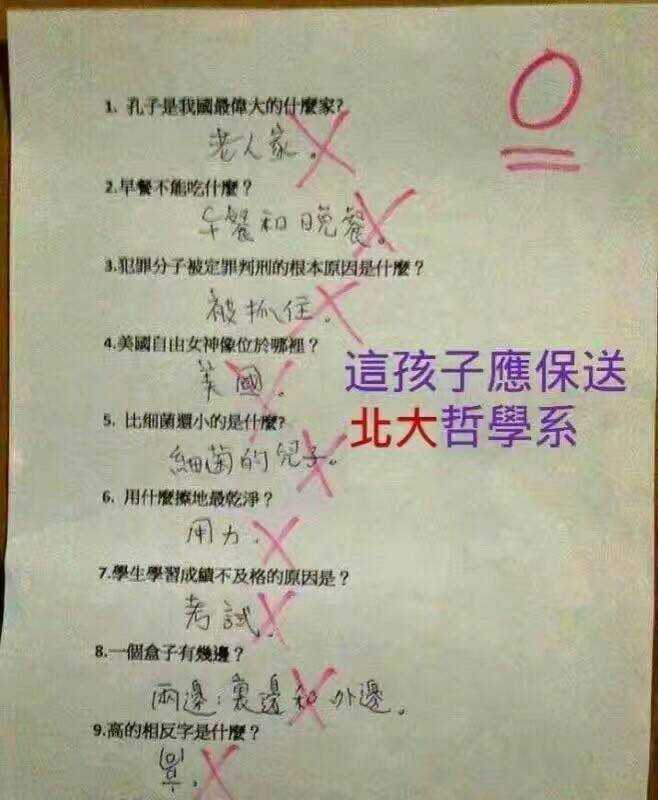 0
1. 孔子是我國最偉大的什麼家?
老人家。
2.早餐不能吃什麼？
午餐和晚餐。
3.犯罪分子被定罪判刑的根本原因是什麼？
被抓住。
4.美國自由女神像位於哪裡？
美國。
這孩子應保送
北大哲學系
5. 比細菌還小的是什麼?
細菌的兒子。
6. 用什麼擦地最乾淨？
用力。
7.學生學習成績不及格的原因是？
考試。
8.一個盒子有幾邊？
兩邊：裏邊和外邊。
9.高的相反字是什麼？